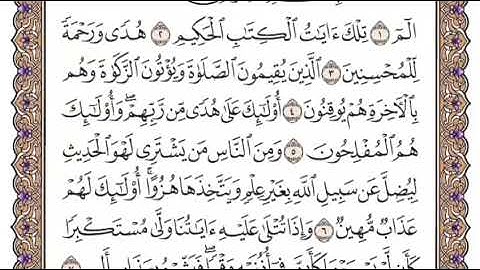 الٓمٓ ١ تِلْكَ ءَايَٰتُ ٱلْكِتَٰبِ ٱلْحَكِيمِ ٢ هُدًى وَرَحْمَةً
لِّلْمُحْسِنِينَ ٣ ٱلَّذِينَ يُقِيمُونَ ٱلصَّلَوٰةَ وَيُؤْتُونَ ٱلزَّكَوٰةَ وَهُم
بِٱلْأٓخِرَةِ هُمْ يُوقِنُونَ ٤ أُو۟لَٰٓئِكَ عَلَىٰ هُدًى مِّن رَّبِّهِمْ ۖ وَأُو۟لَٰٓئِكَ
هُمُ ٱلْمُفْلِحُونَ ٥ وَمِنَ ٱلنَّاسِ مَن يَشْتَرِى لَهْوَ ٱلْحَدِيثِ
لِيُضِلَّ عَن سَبِيلِ ٱللَّهِ بِغَيْرِ عِلْمٍ وَيَتَّخِذَهَا هُزُوًا ۚ أُو۟لَٰٓئِكَ لَهُمْ
عَذَابٌ مُّهِينٌ ٦ وَإِذَا تُتْلَىٰ عَلَيْهِ ءَايَٰتُنَا وَلَّىٰ مُسْتَكْبِرًا